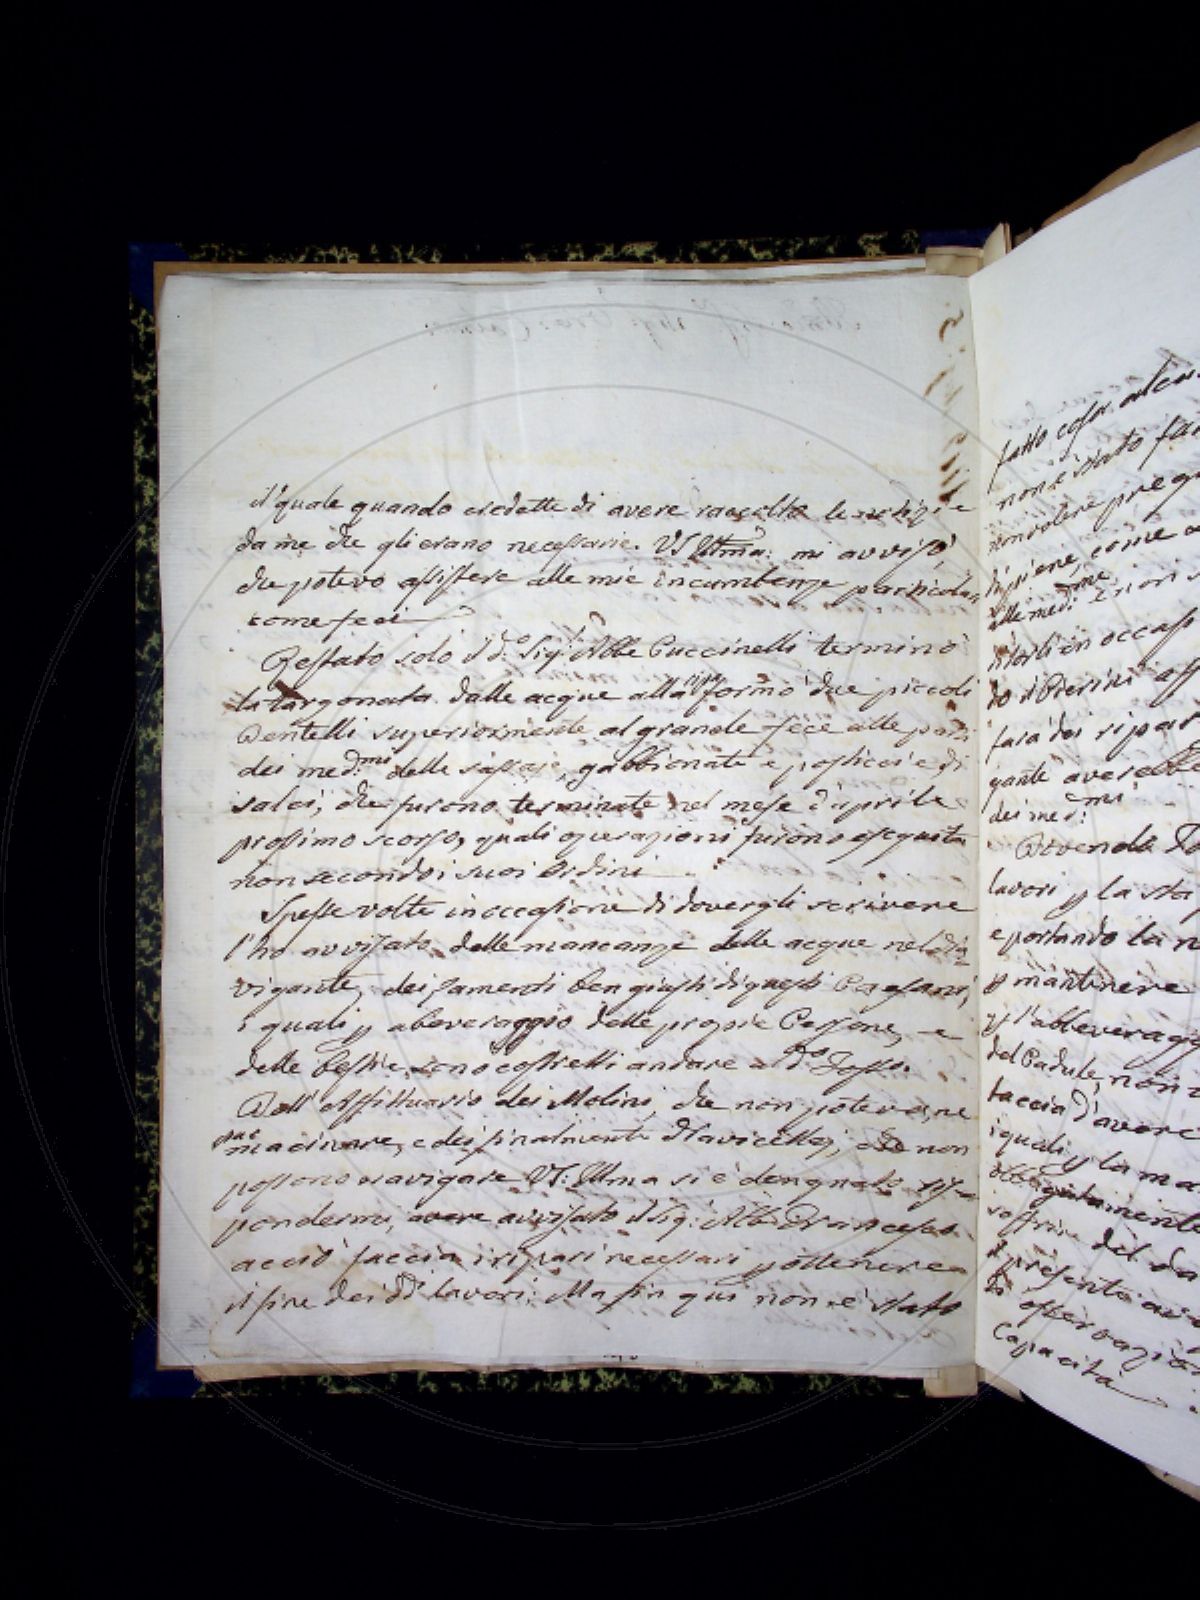 il quale quando credette di avere raccolte le notizie
da me che gli erano necessarie. VS Illma: mi avvisò,
che potevo assistere alle mie incumbenze particolari
come feci
Restato solo il d.o Sig.r Abbe Puccinelli terminò
la targonata dalle acque alla formò due piccoli
Dentelli superiormente al grande fece alle parti
dei med.mi delle sassaie, gabbionate e posticcie di
salci, che furono terminate nel mese d'aprile
prossimo scorso, quali operazioni furono eseguite
non secondo i suoi ordini
Spesse volte in occasione di dovergli scrivere
l'ho avvisato delle mancanze delle acque nel Na
vigante, dei lamenti ben giusti di questi Paesani,
i quali p abeveraggio delle propie Persone, e
delle bestie sono costretti andare al d.o Fosso.
Dall'Affittuario dei Molini, che non poteva, ne
può macinare, e dei finalmente Navicellai, che non
possono navigare VS: Illma si è dengnato ris=
pondermi, avere avvisato il Sig: Abb: Francesco
acciò faccia i ripari necessari p ottenere
il fine dei dd.i lavori; Ma fin qui non è stato
fatto cosa alcu
non è stato fat
non volere preg
come a
alle med.me
in occas
do il Pierini
farà dei ripar
gante averebbe
dei med:mi
Dovendo
lavori p la
e portando la
p mantenere
p l'abbeveragg
del Padule, non
taccia d'avere
i quali p la ma
obbligatamente
soffrire del da
presento
di osservazion
Capacità